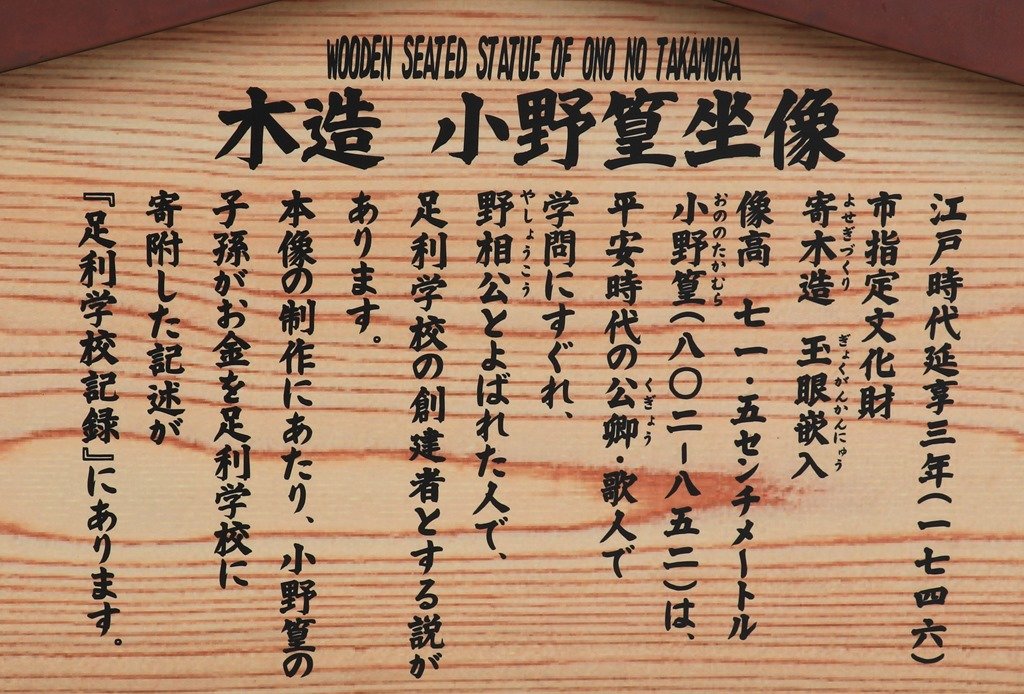 WOODEN SEATED STATUE OF ONO NO TAKAMURA
木造 小野篁坐像
江戸時代延享三年(一七四六)
市指定文化財
よせぎづくり ぎょくがんかんにゅう
寄木造 玉眼嵌入
像高 七一・五センチメートル
おののたかむら
小野篁(八〇二-八五二)は、
くぎょう
平安時代の公卿・歌人で
学問にすぐれ、
やしょうこう
野相公とよばれた人で、
足利学校の創建者とする説が
あります。
本像の制作にあたり、小野篁の
子孫がお金を足利学校に
寄附した記述が
『足利学校記録』にあります。